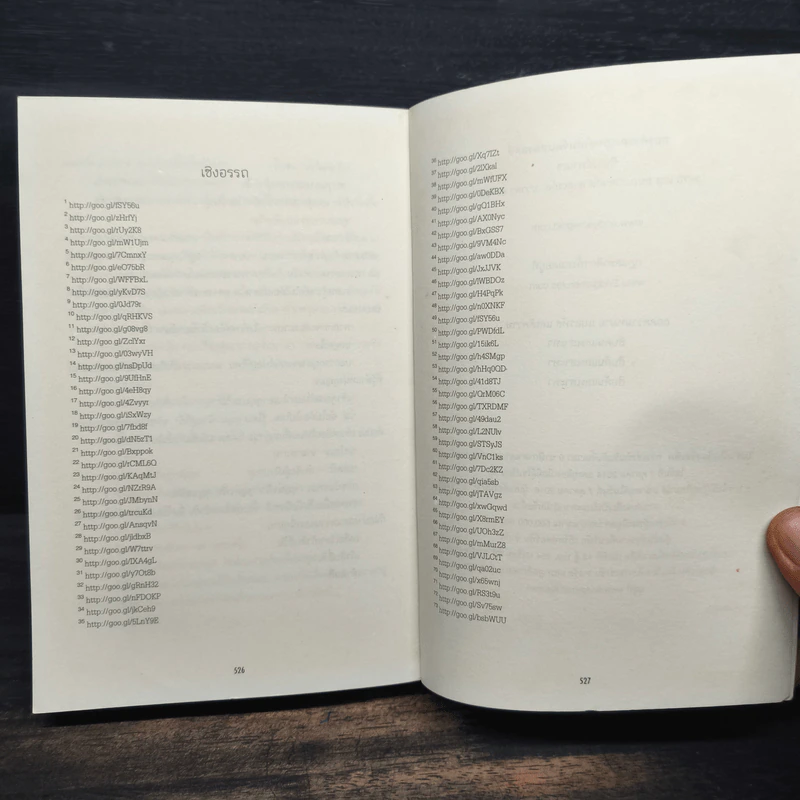 เชิงอรรถ
1 http://goo.gl/fSY56u
2 http://goo.gl/zHrfYj
3 http://goo.gl/rUy2K8
4 http://goo.gl/mW1Ujm
5 http://goo.gl/7CmnxY
6 http://goo.gl/eO75bR
7 http://goo.gl/WFFBxL
8 http://goo.gl/yKvD7S
9 http://goo.gl/0Jd79r
10 http://goo.gl/qRHKVS
11 http://goo.gl/g08vg8
12 http://goo.gl/ZcfYxr
13 http://goo.gl/03wyVH
14 http://goo.gl/naDpUd
15 http://goo.gl/9UfHnE
16 http://goo.gl/4eH8qy
17 http://goo.gl/4Zvyyr
18 http://goo.gl/iSxWzy
19 http://goo.gl/7fbd8f
20 http://goo.gl/dN5zT1
21 http://goo.gl/Bxppok
22 http://goo.gl/rCML6Q
23 http://goo.gl/KAqMtJ
24 http://goo.gl/NZrR9A
25 http://goo.gl/JMbynN
26 http://goo.gl/trcuKd
27 http://goo.gl/AnsqvN
28 http://goo.gl/jldbxB
29 http://goo.gl/W7tzrv
30 http://goo.gl/IXA4gL
31 http://goo.gl/y7Ot8b
32 http://goo.gl/gRnH32
33 http://goo.gl/nFDOKP
34 http://goo.gl/jkCeh9
35 http://goo.gl/5LnY9E
526
36 http://goo.gl/Xq7fZt
37 http://goo.gl/2lXkal
38 http://goo.gl/mWfUFX
39 http://goo.gl/0DeKBX
40 http://goo.gl/gQ1BHx
41 http://goo.gl/AX0Nyc
42 http://goo.gl/BxGSS7
43 http://goo.gl/9VM4Nc
44 http://goo.gl/aw0DDa
45 http://goo.gl/JxJJVK
46 http://goo.gl/lWBDOz
47 http://goo.gl/H4PqPk
48 http://goo.gl/n0XNKF
49 http://goo.gl/fSY56u
50 http://goo.gl/PWDfdL
51 http://goo.gl/15ik6L
52 http://goo.gl/h4SMgp
53 http://goo.gl/hHq0QD
54 http://goo.gl/41d8TJ
55 http://goo.gl/QrM06C
56 http://goo.gl/TXRDMF
57 http://goo.gl/49dau2
58 http://goo.gl/L2NUlv
59 http://goo.gl/STSyJS
60 http://goo.gl/VnC1ks
61 http://goo.gl/7Dc2KZ
62 http://goo.gl/qia5sb
63 http://goo.gl/jTAVgz
64 http://goo.gl/xwGqwd
65 http://goo.gl/X8rmEY
66 http://goo.gl/UOh3zZ
67 http://goo.gl/mMurZ8
68 http://goo.gl/VJLCtT
69 http://goo.gl/qa02uc
70 http://goo.gl/x65wnj
71 http://goo.gl/RS3t9u
72 http://goo.gl/Sv75sw
73 http://goo.gl/babWUU
527